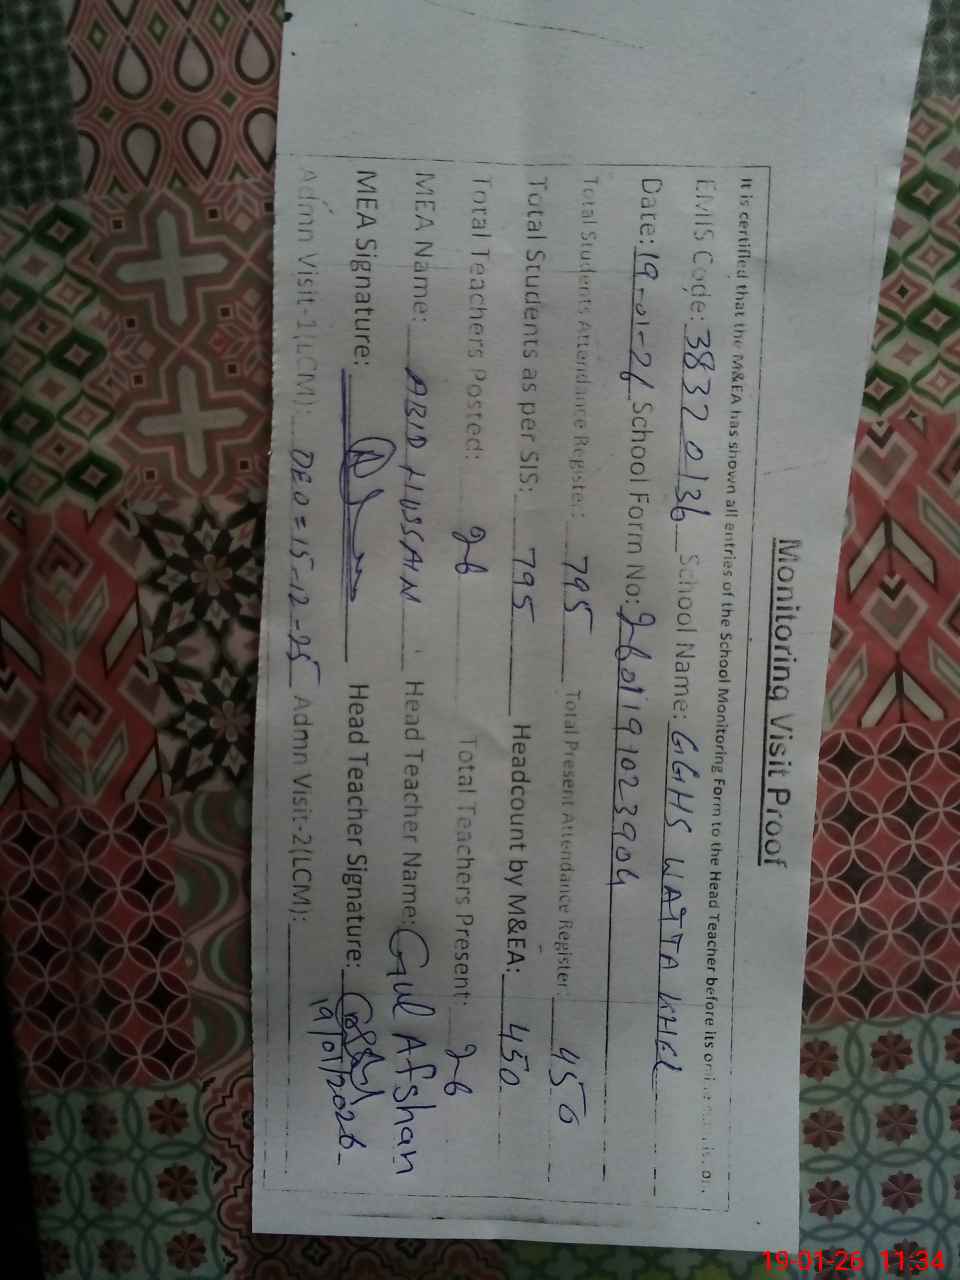 Monitoring Visit Proof
It is certified that the M&EA has shown all entries of the School Monitoring Form to the Head Teacher before its
EMIS Code: 38320136 School Name: GGHS WATTA KHEL
Date: 19-01-26 School Form No: 2601191023904
Total Students Attendance Register: 795 Total Present Attendance Register: 450
Total Students as per SIS: 795 Headcount by M&EA: 450
Total Teachers Posted: 26 Total Teachers Present: 26
MEA Name: ABID HUSSAIN Head Teacher Name: Gul Afshan
MEA Signature: Head Teacher Signature:
19/01/2026
Admn Visit-1(LCM): DEO = 15-12-25 Admn Visit-2(LCM):
19-01-26 11:34